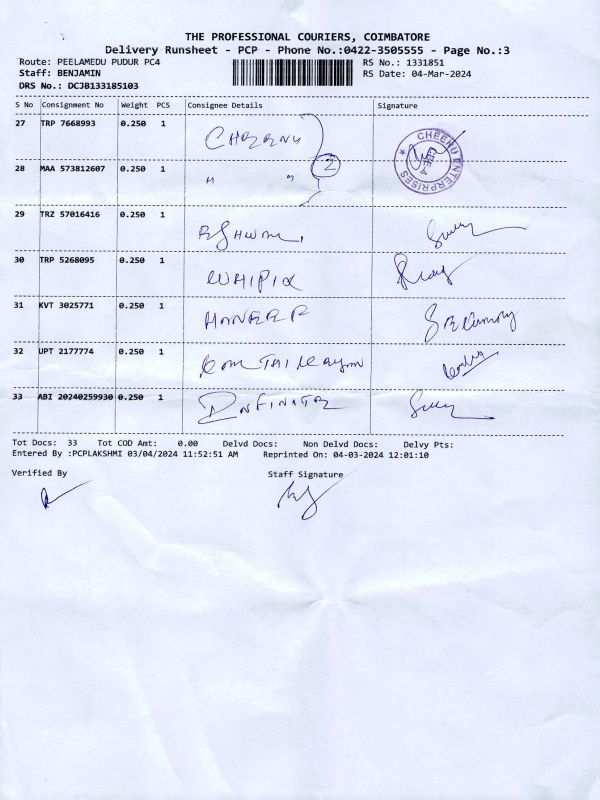 THE PROFESSIONAL COURIERS, COIMBATORE
Delivery Runsheet - PCP - Phone No.:0422-3505555 - Page No.:3
Route: PEELAMEDU PUDUR PC4 RS No.: 1331851
Staff: BENJAMIN RS Date: 04-Mar-2024
DRS No.: DCJB133185103
S No Consignment No Weight PCS Consignee Details Signature
27 TRP 7668993 0.250 1
28 MAA 573812607 0.250 1 " " 2
CHEENU ENTERPRISES
CBE-4
29 TRZ 57016416 0.250 1
30 TRP 5268095 0.250 1
31 KVT 3025771 0.250 1
32 UPT 2177774 0.250 1
33 ABI 20240259930 0.250 1
Tot Docs: 33 Tot COD Amt: 0.00 Delvd Docs: Non Delvd Docs: Delvy Pts:
Entered By :PCPLAKSHMI 03/04/2024 11:52:51 AM Reprinted On: 04-03-2024 12:01:10
Verified By Staff Signature